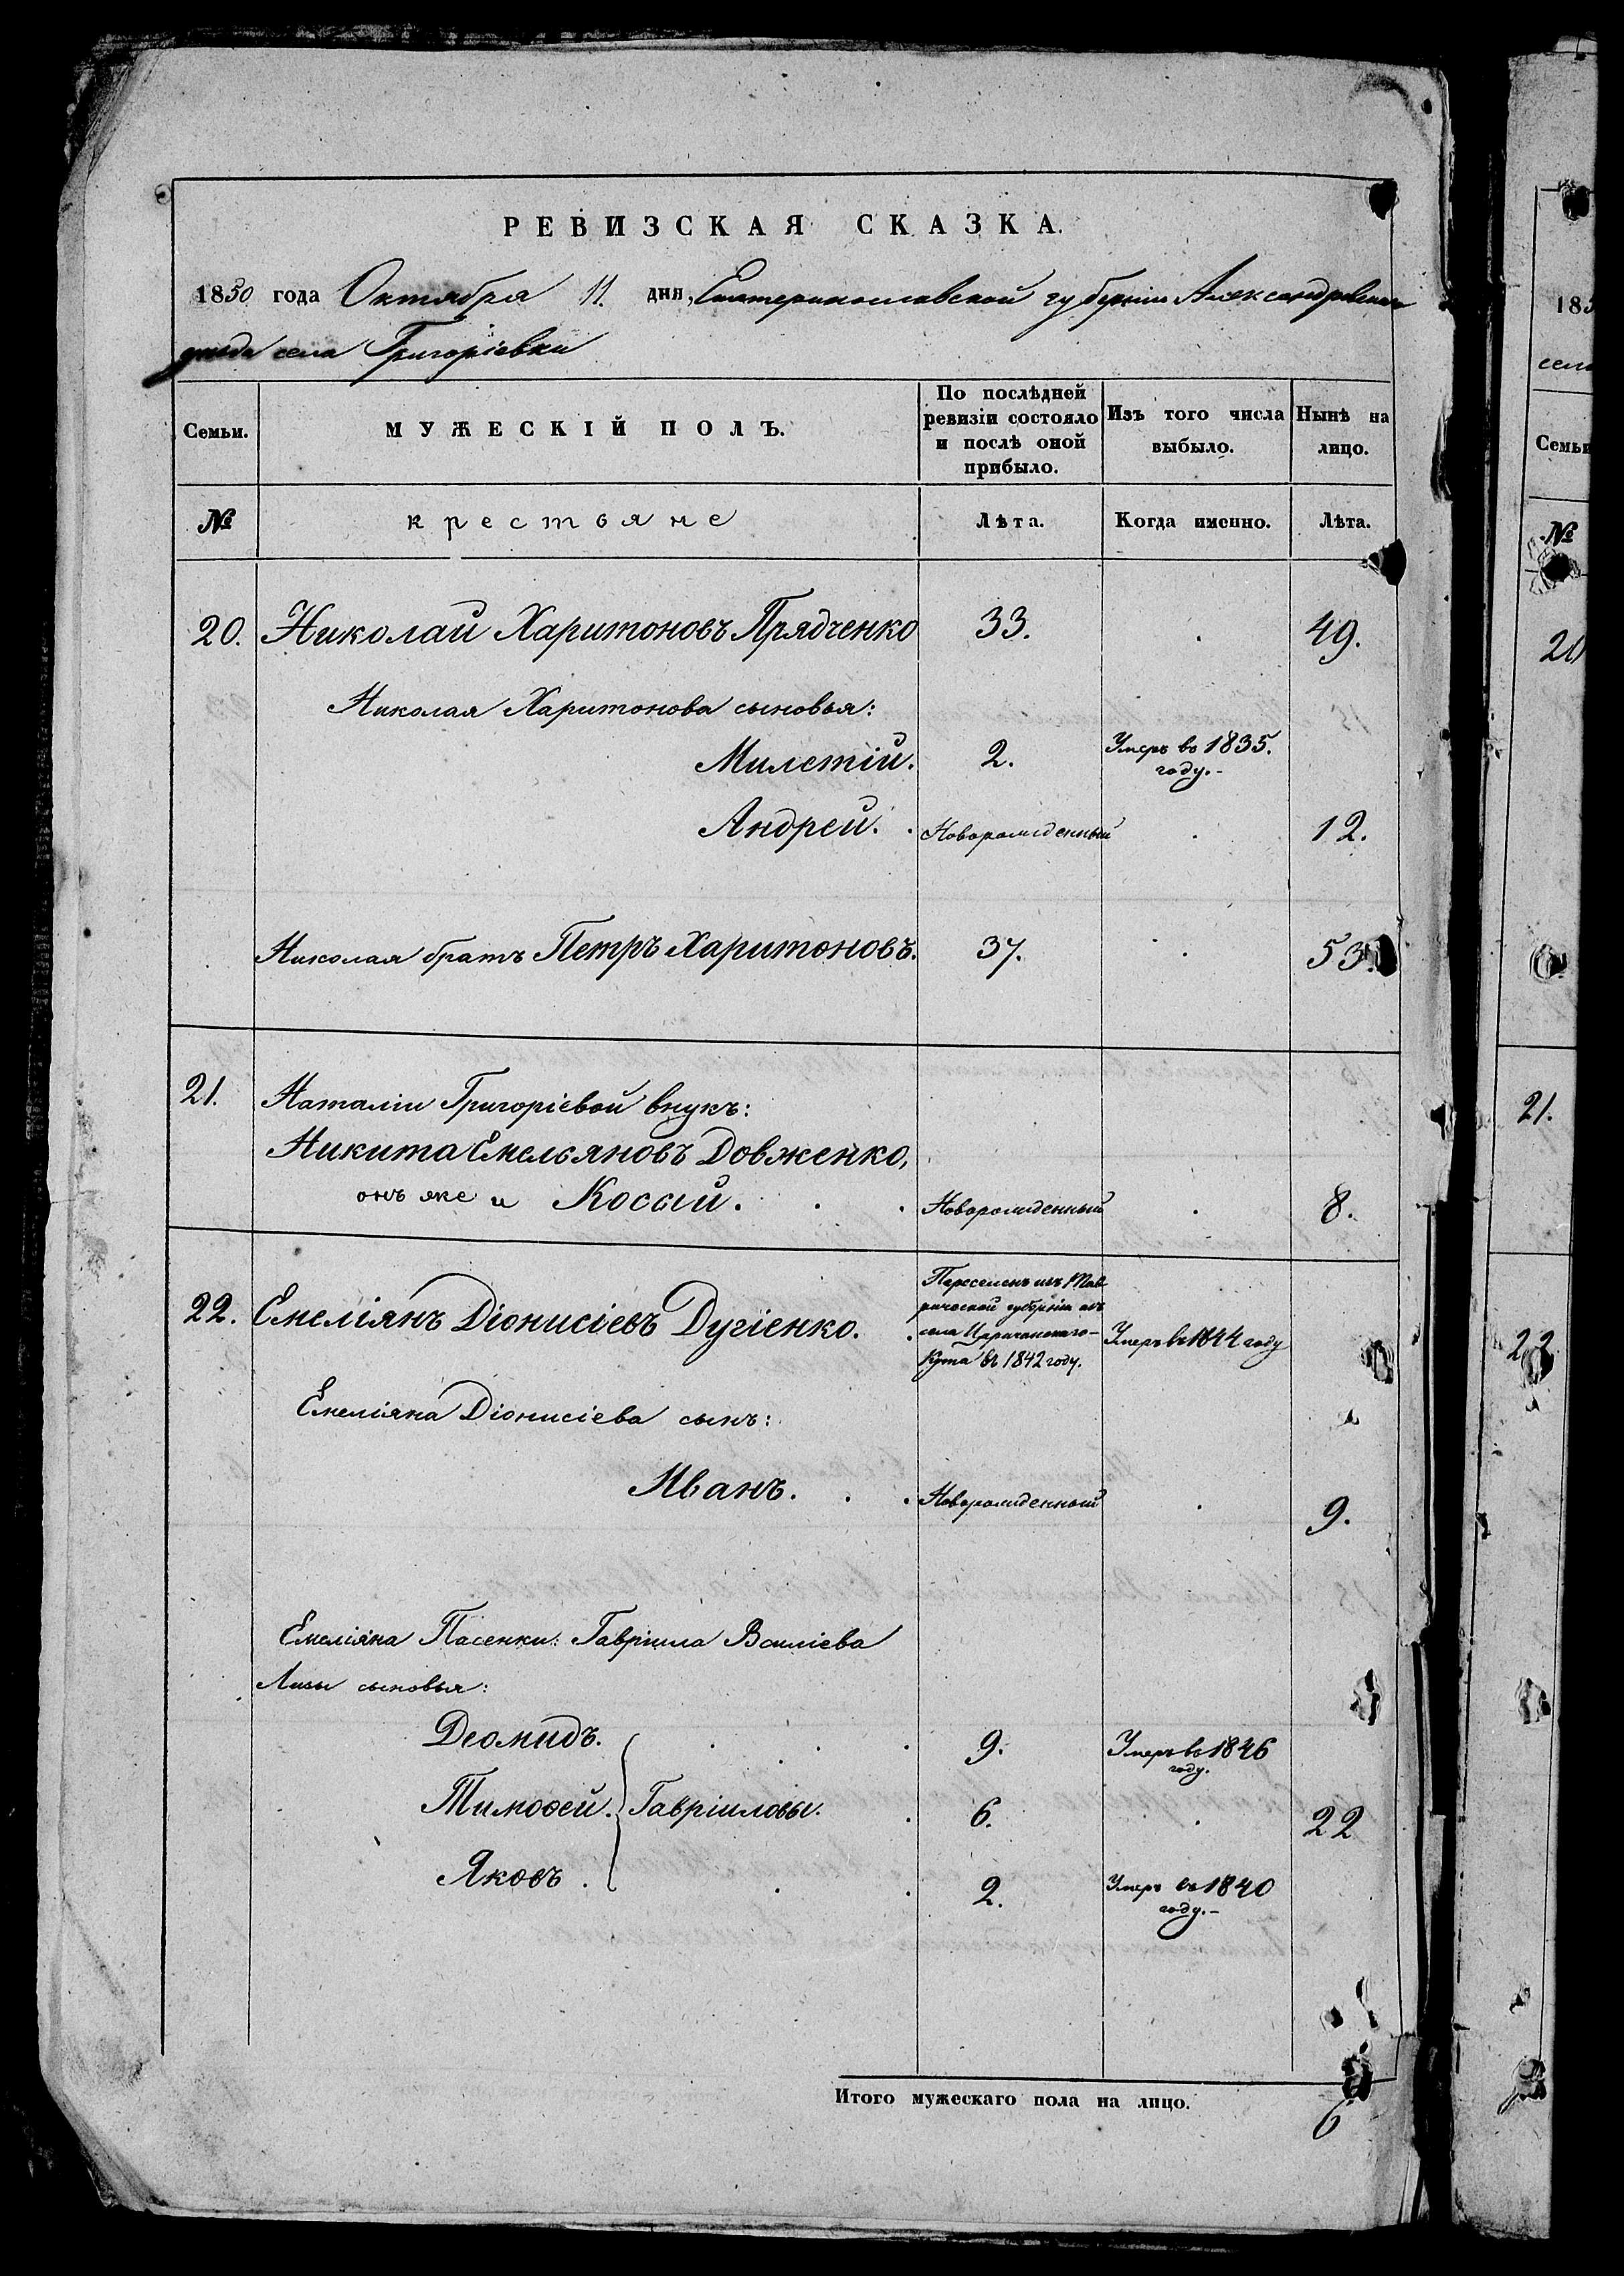 РЕВИЗСКАЯ СКАЗКА.
1850 года Октября 11. дня, Екатеринославской губерніи Александровскаго
уезда села Григоріевки
Семьи.
МУЖЕСКІЙ ПОЛЪ.
По послѣдней ревизіи состояло и послѣ оной прибыло.
Изъ того числа выбыло.
Нынѣ на лицо.
№ крестьяне Лѣта. Когда именно. Лѣта.
20. Николай Харитоновъ Прядченко 33. 49.
Николая Харитонова сыновья:
Милетій. 2. Умеръ въ 1835. году.-
Андрей. Новорожденный 12.
Николая братъ Петръ Харитоновъ. 37. 53.
21. Наталіи Григоріевой внукъ:
Никита Емельяновъ Довженко,
онъ же и Косый. Новорожденный 8.
22. Емеліянъ Діонисіевъ Дугіенко. Переселенъ изъ Таврической губерніи изъ села Царичанскаго-Кута въ 1842 году. Умеръ въ 1844 году
Емеліяна Діонисіева сынъ:
Иванъ. Новорожденный 9.
Емеліяна Пасенки: Гавріила Василіева
Лизы сыновья:
Деомидъ. 9. Умеръ въ 1846 году.
Тимофей. Гавріиловы. 6. 22
Яковъ. 2. Умеръ въ 1840 году.-
Итого мужескаго пола на лицо. 6
183
села
Семьи
№
20
21.
22